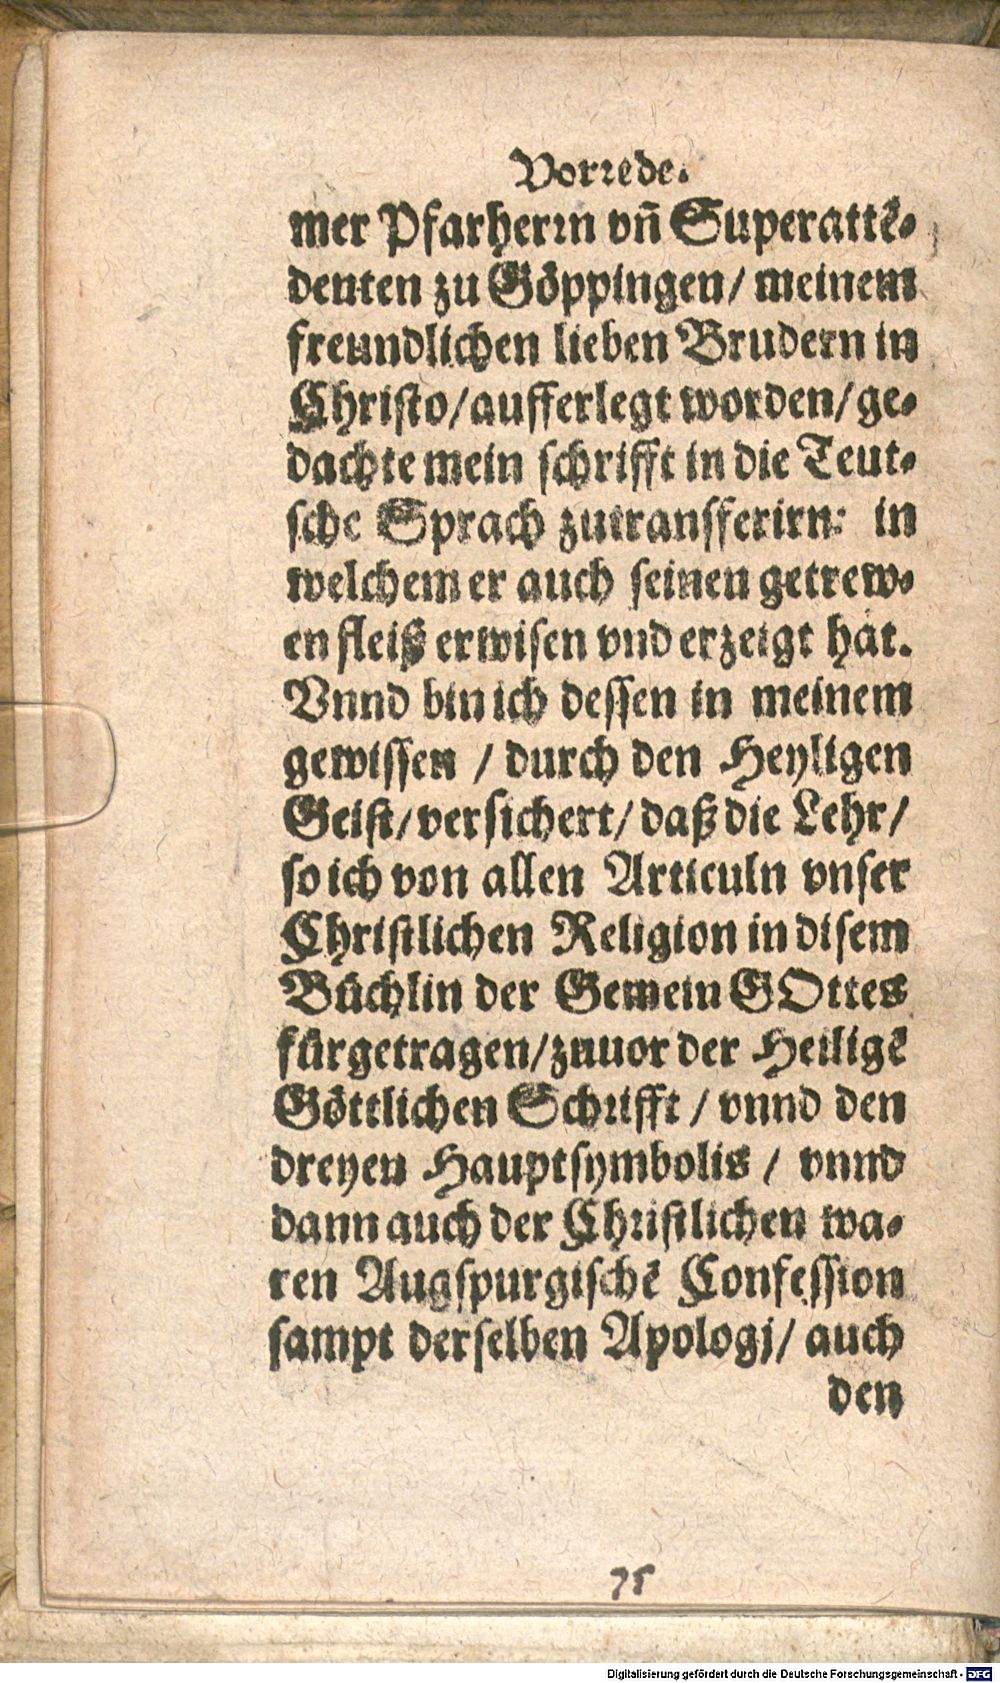 Vorrede.
mer Pfarherrn vn̄ Superattē-
denten zu Göppingen/ meinem
freundlichen lieben Brudern in
Christo/aufferlegt worden/ge-
dachte mein schrifft in die Teut-
sche Sprach zutransferirn: in
welchem er auch seinen getrew-
en fleiß erwisen vnd erzeigt hat.
Vnnd bin ich dessen in meinem
gewissen / durch den Heyligen
Geist/versichert/ daß die Lehr/
so ich von allen Articuln vnser
Christlichen Religion in disem
Büchlin der Gemein GOttes
fürgetragen/zuuor der Heiligē
Göttlichen Schrifft / vnnd den
dreyen Hauptsymbolis / vnnd
dann auch der Christlichen wa-
ren Augspurgischē Confession
sampt derselben Apologj/ auch
den
75
Digitalisierung gefördert durch die Deutsche Forschungsgemeinschaft - DFG